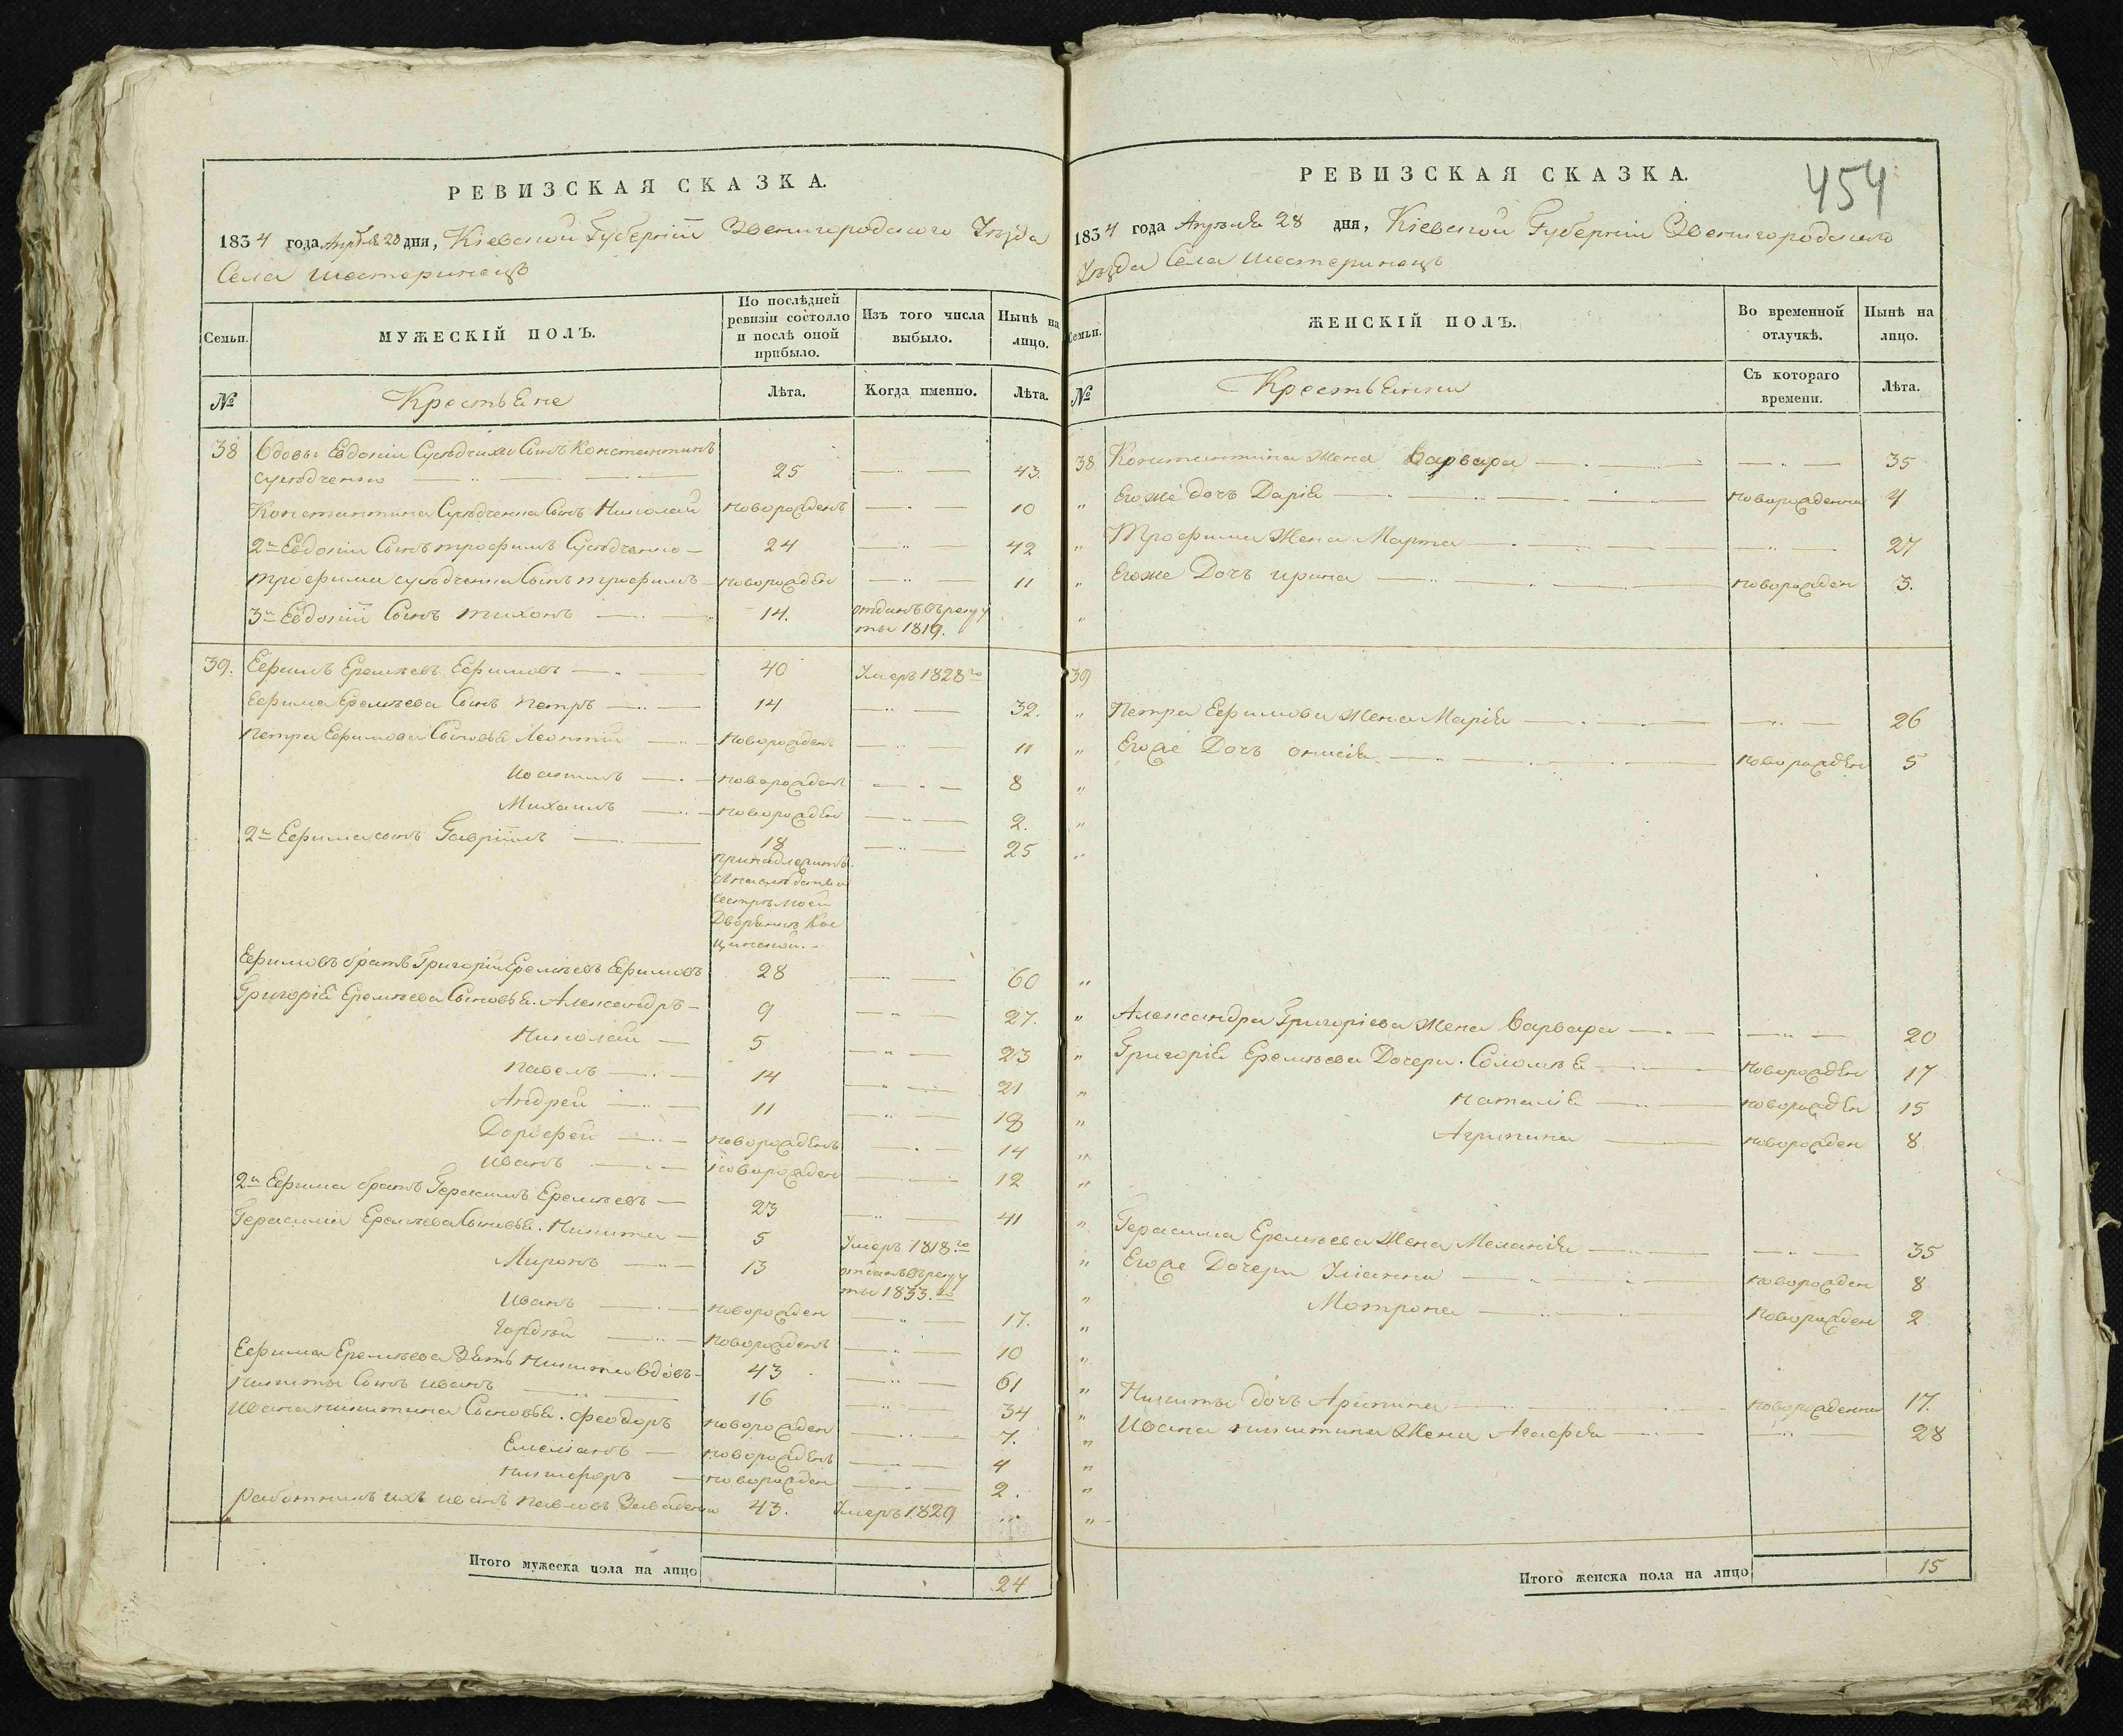 РЕВИЗСКАЯ СКАЗКА.
1834 года Апрѣля 28 дня, Кіевской Губерніи Звенигородского Уѣзда
Села Шестеринецъ
Семьи.
МУЖЕСКІЙ ПОЛЪ.
По послѣдней ревизіи состояло и послѣ оной прибыло.
Изъ того числа выбыло.
Нынѣ на лицо.
№
Крестьяне
Лѣта.
Когда именно.
Лѣта.
38 Вдовы Евдокіи Сынъ Константинъ
25 43.
Константина Сынъ Николай новорожденъ 10
2й Евдокіи Сынъ трофимъ 24 42
трофима Сынъ трофимъ новорожден 11
3й Евдокіи Сынъ тихонъ 14. отданъ въ рекру
ты 1819.
39. Ефимъ Еремѣевъ Ефимовъ 40 Умеръ 1828го
Ефима Еремѣева Сынъ петръ 14 32.
петра Ефимова Сыновья Леонтій новорожденъ 11
новорожденъ 8
Михаилъ новорожден 2.
2й Ефима сынъ Гавріилъ 18 25
принадлежитъ
сестрѣ моей
Ефимовъ братъ Григорій Еремѣевъ Ефимовъ 28 60
Григорія Еремѣева Сыновья. Александръ 9 27.
Николай 5 23
павелъ 14 21
Андрей 11 18
Дорофей новорожденъ 14
иванъ новорожден 12
2й Ефима братъ Герасимъ Еремѣевъ 23 41
Герасима Еремѣева Сыновья. Никита 5 Умеръ 1818го
Миронъ 13 отданъ въ рекру
ты 1833.го
иванъ новорожден 17.
Гордѣй новорожденъ 10
Ефима Еремѣева Зять Никита вдовъ 43 61
никиты Сынъ иванъ 16 34
ивана никитина Сыновья. феодоръ новорожден 7.
Емеліанъ новорожденъ 4
никифоръ новорожден 2.
работникъ ихъ иванъ павловъ 43. Умеръ 1829
Итого мужеска пола на лицо 24
454
РЕВИЗСКАЯ СКАЗКА.
1834 года Апрѣля 28 дня, Кіевской Губерніи Звенигородского
Уѣзда Села Шестеринецъ
Семьи.
ЖЕНСКІЙ ПОЛЪ.
Во временной отлучкѣ.
Нынѣ на лицо.
№
Съ котораго времени.
Лѣта.
38 Константина жена Варвара 35
" Егоже дочь Дарія новорожденна 4
" Трофима Жена Марта 27
" Егоже Дочь ирина новорожден 3.
"
39
" Петра Ефимова жена Марія 26
" Егоже Дочь новорожден 5
"
"
"
"
" Александра Григоріева жена варвара 20
" Григорія Еремѣева Дочери. Соломѣя новорожден 17
" наталія новорожден 15
" Агрипина новорожден 8
"
"
" Герасима Еремѣева Жена Меланія 35
" Егоже Дочери Уліанна новорожден 8
" Мотрона новорожден 2
"
"
" Никиты дочь новорожденна 17.
" Ивана никитина Жена Агафія 28
"
"
"
"
Итого женска пола на лицо 15